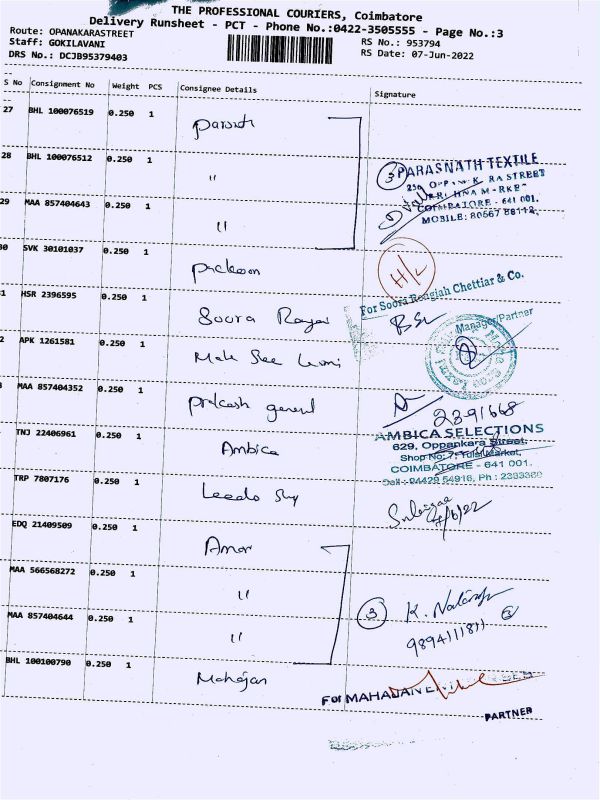 THE PROFESSIONAL COURIERS, Coimbatore
Delivery Runsheet - PCT - Phone No.:0422-3505555 - Page No.:3
Route: OPANAKARASTREET
Staff: GOKILAVANI
DRS No.: DCJB95379403
RS No.: 953794
RS Date: 07-Jun-2022
S No Consignment No Weight PCS Consignee Details Signature
27 BHL 100076519 0.250 1
28 BHL 100076512 0.250 1 "
PARASNATH TEXTILE
29 MAA 857404643 0.250 1 "
COIMBATORE - 641 001.
MOBILE: 80567 88112,
30 SVK 30101037 0.250 1
H/L
For Soora Rengiah Chettiar & Co.
Manager/Partner
1 HSR 2396595 0.250 1 Soora
2 APK 1261581 0.250 1
MAA 857404352 0.250 1 prakash general
2391668
TNJ 22406961 0.250 1 Ambica
AMBICA SELECTIONS
629, Oppankara Street,
Shop No: 7, Tulsi Market,
COIMBATORE - 641 001.
TRP 7807176 0.250 1
EDQ 21409509 0.250 1 Amar
MAA 566568272 0.250 1 "
3
MAA 857404644 0.250 1 "
9894111811
BHL 100100790 0.250 1 Mahajan
For MAHAJAN
PARTNER